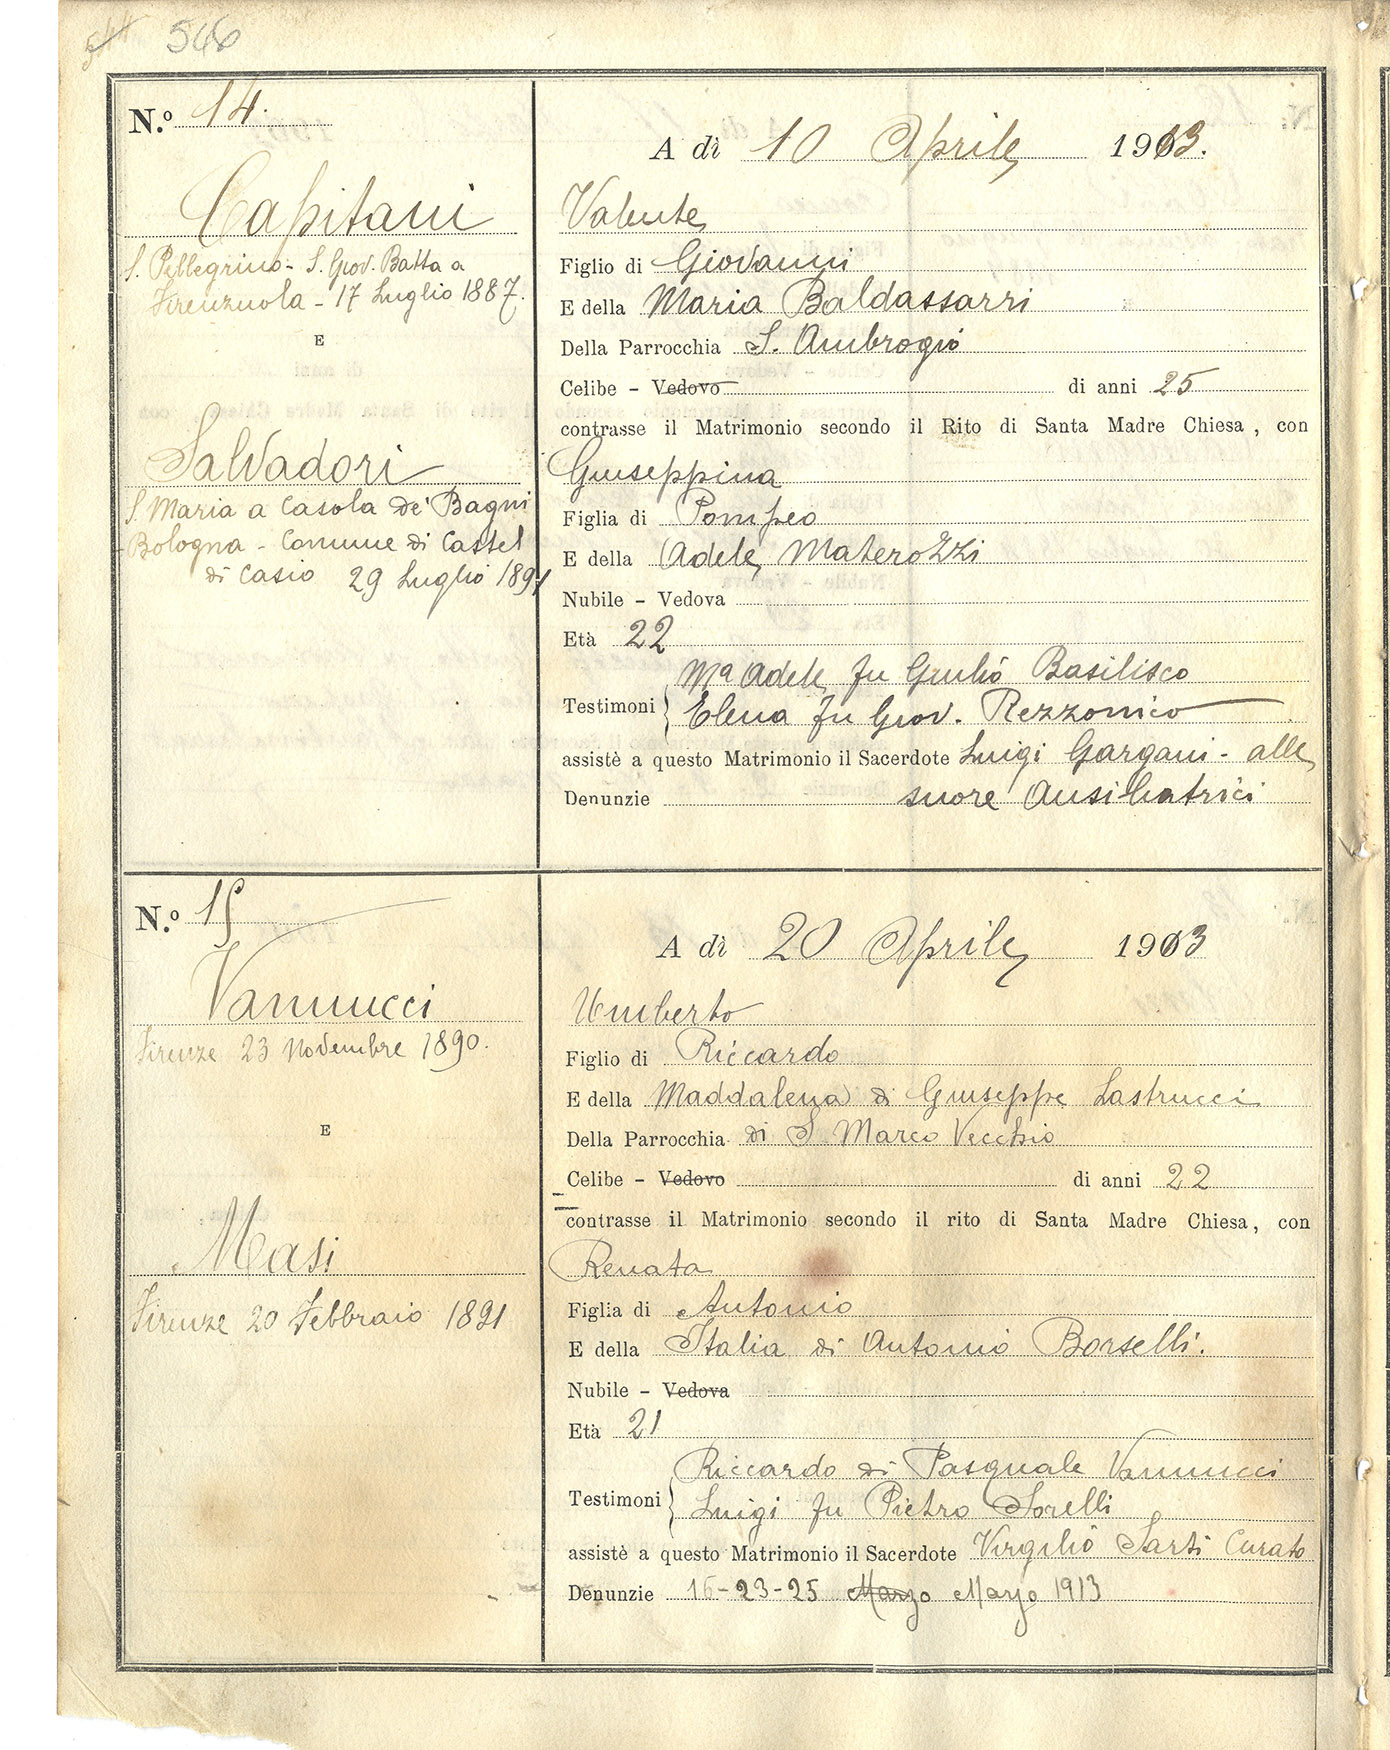 546
N.º 14.
Capitani
S. Pellegrino - S. Giov. Batta a
Firenzuola - 17 Luglio 1887.
E
Salvadori
S. Maria a Casola de' Bagni
Bologna - Comune di Castel
di Casio 29 Luglio 1891
A dì 10 Aprile 1913.
Valente
Figlio di Giovanni
E della Maria Baldassarri
Della Parrocchia S. Ambrogio
Celibe - Vedovo di anni 25
contrasse il Matrimonio secondo il Rito di Santa Madre Chiesa, con
Giuseppina
Figlia di Pompeo
E della Adele Materozzi
Nubile - Vedova
Età 22
Mª Adele fu Giulio Basilisco
Testimoni
Elena fu Giov. Rezzonico
assistè a questo Matrimonio il Sacerdote Luigi Gargani - alle
Denunzie suore Ausiliatrici
N.º 15
Vannucci
Firenze 23 Novembre 1890.
E
Masi
Firenze 20 Febbraio 1891
A dì 20 Aprile 1913
Umberto
Figlio di Riccardo
E della Maddalena di Giuseppe Lastrucci
Della Parrocchia di S. Marco Vecchio
Celibe - Vedovo di anni 22
contrasse il Matrimonio secondo il rito di Santa Madre Chiesa, con
Renata
Figlia di Antonio
E della Italia di Antonio Borselli.
Nubile - Vedova
Età 21
Riccardo di Pasquale Vannucci
Testimoni
Luigi fu Pietro Sorelli
assistè a questo Matrimonio il Sacerdote Virgilio Sarti Curato
Denunzie 16-23-25 Marzo Marzo 1913